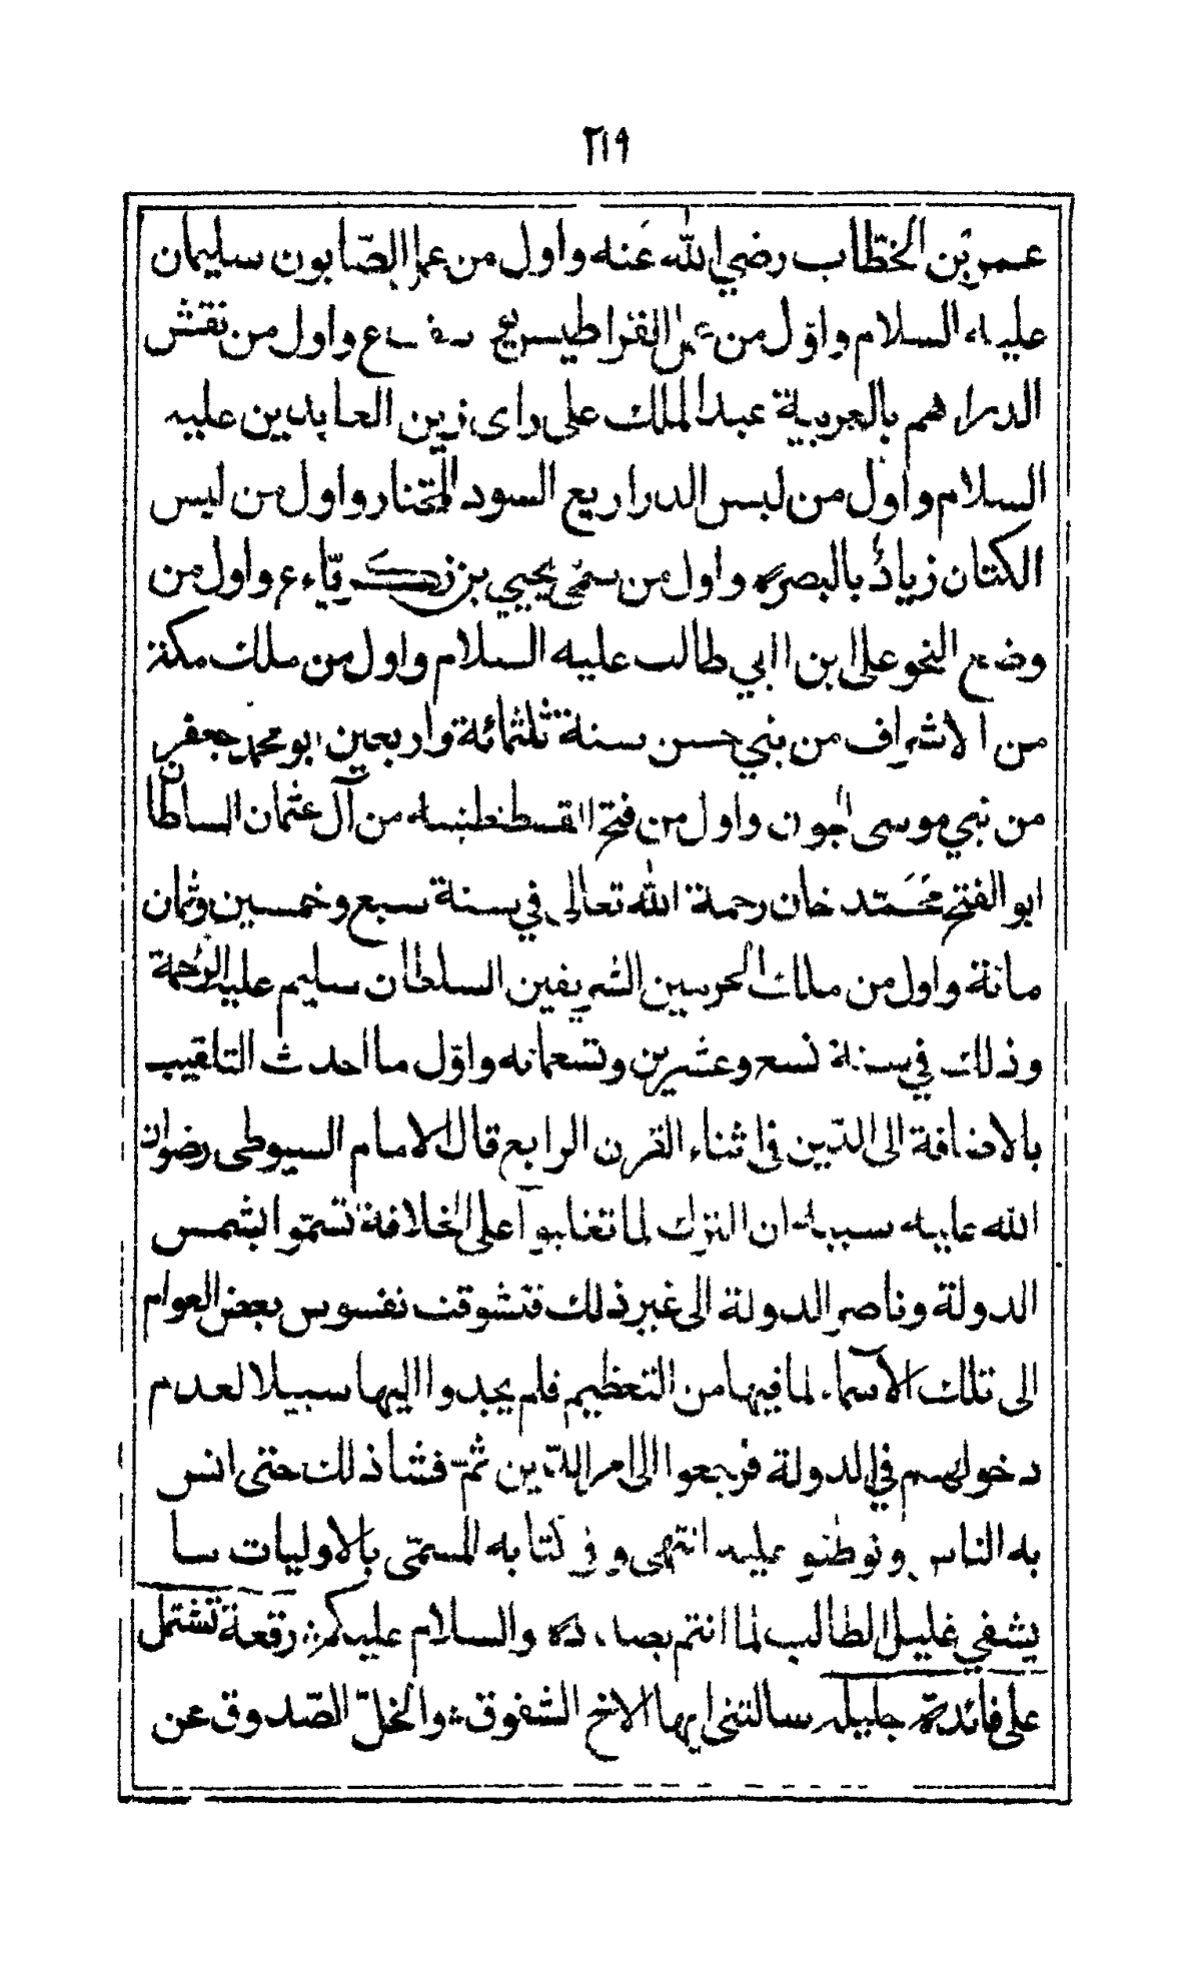 ٢١٩
عمر بن الخطاب رضي الله عنه واول من عمل الصابون سليمان
عليه السلام واوّل من عمل القراطيس يوسف ع واول من نقش
الدراهم بالعربية عبد الملك على راى زين العابدين عليه
السلام واول من لبس الدراريع السود المختار واول من لبس
الكتان زياد بالبصرة واول من سمّى يحيي بن زكريّاء ع واول من
وضع النحو على ابن ابي طالب عليه السلام واول من ملك مكة
من الاشراف من بني حسن سنة ثلثمائة واربعين ابو محمد جعفر
من بني موسى الجون واول من فتح القسطنطنيه من آل عثمان السلطان
ابو الفتح محَمّد خان رحمة الله تعالى في سنة سبع وخمسين وثمان
مائة واول من ملك الحرمين الشريفين السلطان سليم عليه الرحمة
وذلك في سنة تسع وعشرين وتسعمائه واوّل ما احدث التلقيب
بالاضافة الى الدّين في اثناء القرن الرابع قال الامام السيوطى رضوان
الله عليه سببه ان الترك لما تغلبوا على الخلافة تسمّوا بشمس
الدولة وناصر الدولة الى غير ذلك فتشوقت نفوس بعض العوام
الى تلك الاسماء لما فيها من التعظيم فلم يجدوا اليها سبيلا لعدم
دخولهم في الدولة فرجعوا الى امر الدّين ثمّ فشا ذلك حتى انس
به الناس وتوطنو عليه انتهى وفي كتابه المسمّى بالاوليات ما
يشفي غليل الطالب لما انتم بصدده والسلام عليكم رقعة تشتمل
على فائدة جليله سالتنى ايها الاخ الشفوق والخلّ الصّدوق عن